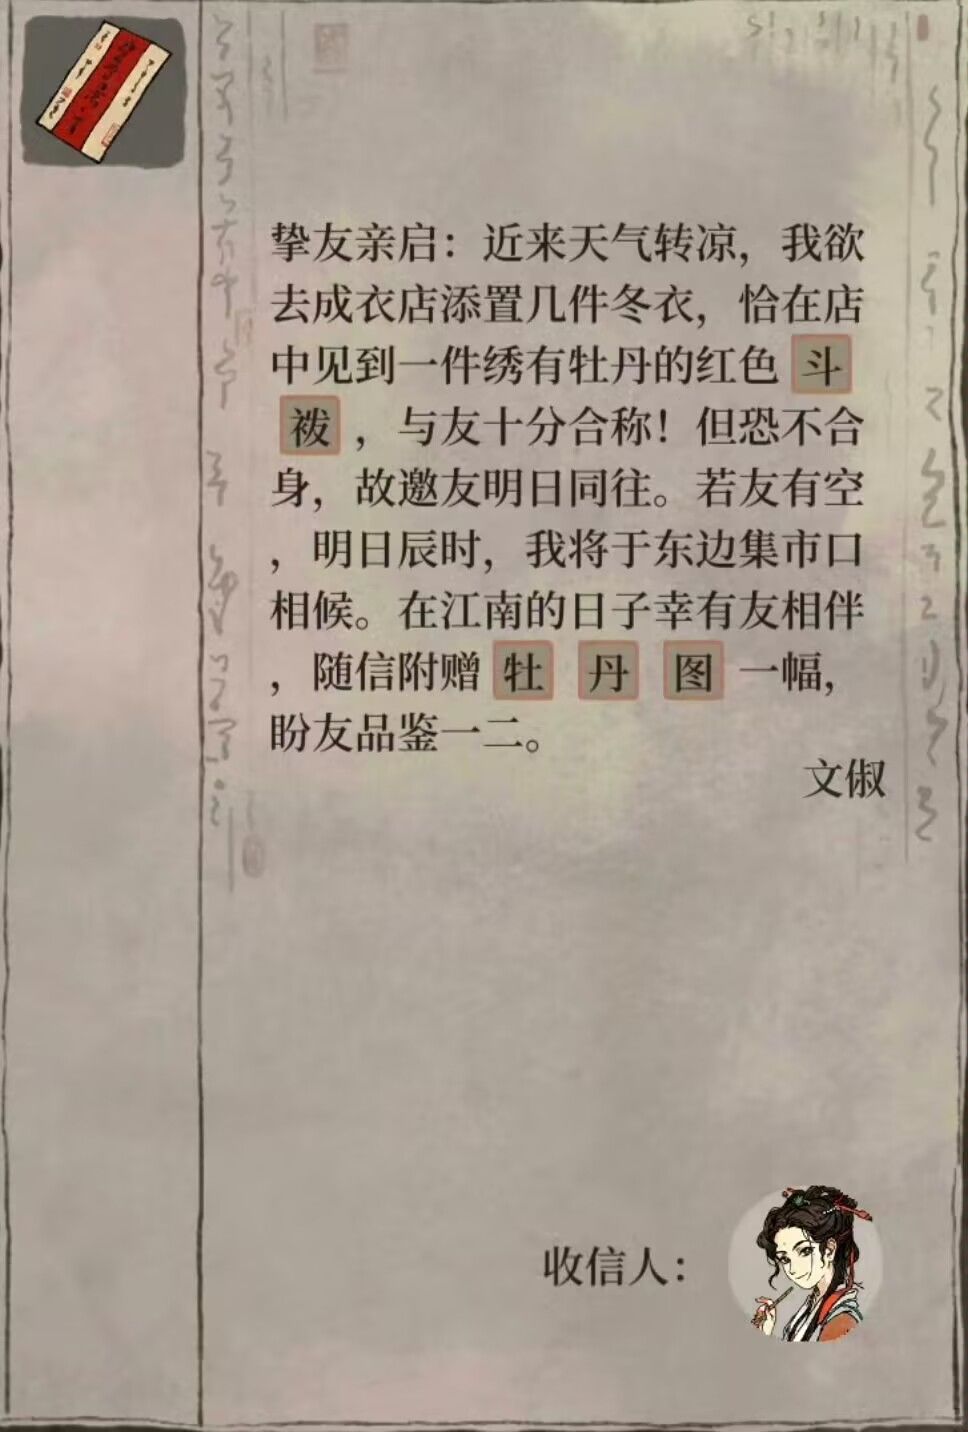 挚友亲启：近来天气转凉，我欲
去成衣店添置几件冬衣，恰在店
中见到一件绣有牡丹的红色斗
袯，与友十分合称！但恐不合
身，故邀友明日同往。若友有空
，明日辰时，我将于东边集市口
相候。在江南的日子幸有友相伴
，随信附赠牡丹图一幅，
盼友品鉴一二。
文俶
收信人：